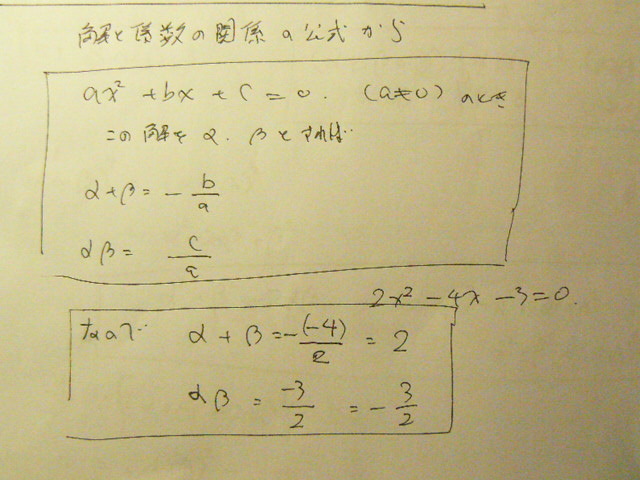 解と係数の関係の公式から
ax² + bx + c = 0. (a≠0) のとき
この解を α. β とすれば
α+β = - b/a
αβ = c/a
2x² - 4x - 3 = 0.
なので α + β = -(-4)/2 = 2
αβ = -3/2 = - 3/2